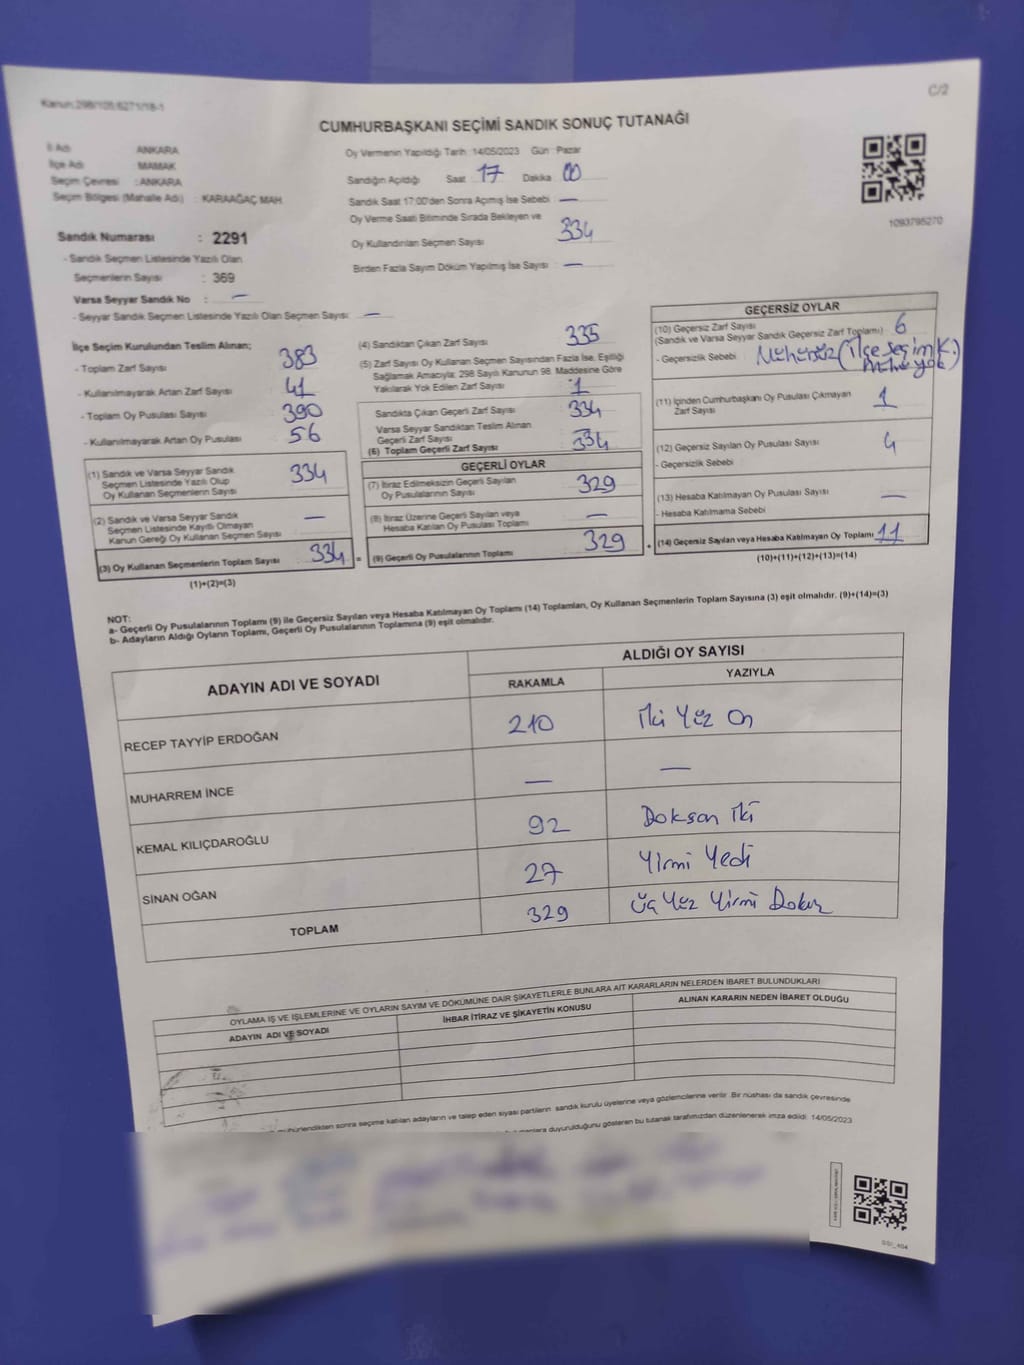 Kanun:298/105;6271/18-1
C/2
CUMHURBAŞKANI SEÇİMİ SANDIK SONUÇ TUTANAĞI
İl Adı ANKARA
İlçe Adı MAMAK
Seçim Çevresi : ANKARA
Seçim Bölgesi (Mahalle Adı) : KARAAĞAÇ MAH
Sandık Numarası : 2291
- Sandık Seçmen Listesinde Yazılı Olan
Seçmenlerin Sayısı : 369
Varsa Seyyar Sandık No : —
- Seyyar Sandık Seçmen Listesinde Yazılı Olan Seçmen Sayısı : —
Oy Vermenin Yapıldığı Tarih :14/05/2023 Gün : Pazar
Sandığın Açıldığı Saat 17 Dakika 00
Sandık Saat 17:00'den Sonra Açımış İse Sebebi —
Oy Verme Saati Bitiminde Sırada Bekleyen ve
Oy Kullandırılan Seçmen Sayısı 334
Birden Fazla Sayım Döküm Yapılmış İse Sayısı —
1093795270
İlçe Seçim Kurulundan Teslim Alınan;
- Toplam Zarf Sayısı 383
- Kullanılmayarak Artan Zarf Sayısı 41
- Toplam Oy Pusulası Sayısı 390
- Kullanılmayarak Artan Oy Pusulası 56
(1) Sandık ve Varsa Seyyar Sandık
Seçmen Listesinde Yazılı Olup
Oy Kullanan Seçmenlerin Sayısı 334
(2) Sandık ve Varsa Seyyar Sandık
Seçmen Listesinde Kayıtlı Olmayan
Kanun Gereği Oy Kullanan Seçmen Sayısı —
(3) Oy Kullanan Seçmenlerin Toplam Sayısı 334
(1)+(2)=(3)
(4) Sandıktan Çıkan Zarf Sayısı 335
(5) Zarf Sayısı Oy Kullanan Seçmen Sayısından Fazla İse, Eşitliği
Sağlamak Amacıyla; 298 Sayılı Kanunun 98. Maddesine Göre
Yakılarak Yok Edilen Zarf Sayısı 1
Sandıkta Çıkan Geçerli Zarf Sayısı 334
Varsa Seyyar Sandıktan Teslim Alınan
Geçerli Zarf Sayısı —
(6) Toplam Geçerli Zarf Sayısı 334
GEÇERLİ OYLAR
(7) İtiraz Edilmeksizin Geçerli Sayılan
Oy Pusulalarının Sayısı 329
(8) İtiraz Üzerine Geçerli Sayılan veya
Hesaba Katılan Oy Pusulası Toplamı —
= (9) Geçerli Oy Pusulalarının Toplamı 329 +
GEÇERSİZ OYLAR
(10) Geçersiz Zarf Sayısı
(Sandık ve Varsa Seyyar Sandık Geçersiz Zarf Toplamı) 6
- Geçersizlik Sebebi Mühürsüz (İlçe Seçim K.
Mührü yok)
(11) İçinden Cumhurbaşkanı Oy Pusulası Çıkmayan
Zarf Sayısı 1
(12) Geçersiz Sayılan Oy Pusulası Sayısı 4
- Geçersizlik Sebebi
(13) Hesaba Katılmayan Oy Pusulası Sayısı —
- Hesaba Katılmama Sebebi
(14) Geçersiz Sayılan veya Hesaba Katılmayan Oy Toplamı 11
(10)+(11)+(12)+(13)=(14)
NOT:
a- Geçerli Oy Pusulalarının Toplamı (9) ile Geçersiz Sayılan veya Hesaba Katılmayan Oy Toplamı (14) Toplamları, Oy Kullanan Seçmenlerin Toplam Sayısına (3) eşit olmalıdır. (9)+(14)=(3)
b- Adayların Aldığı Oyların Toplamı, Geçerli Oy Pusulalarının Toplamına (9) eşit olmalıdır.
ADAYIN ADI VE SOYADI ALDIĞI OY SAYISI
RAKAMLA YAZIYLA
RECEP TAYYİP ERDOĞAN 210 İki Yüz On
MUHARREM İNCE — —
KEMAL KILIÇDAROĞLU 92 Doksan İki
SİNAN OĞAN 27 Yirmi Yedi
TOPLAM 329 Üç Yüz Yirmi Dokuz
OYLAMA İŞ VE İŞLEMLERİNE VE OYLARIN SAYIM VE DÖKÜMÜNE DAİR ŞİKAYETLERLE BUNLARA AİT KARARLARIN NELERDEN İBARET BULUNDUKLARI
ADAYIN ADI VE SOYADI İHBAR İTİRAZ VE ŞİKAYETİN KONUSU ALINAN KARARIN NEDEN İBARET OLDUĞU
mühürlendikten sonra seçime katılan adayların ve talep eden siyasi partilerin sandık kurulu üyelerine veya gözlemcilerine verilir. Bir nüshası da sandık çevresinde
duyurulduğunu gösteren bu tutanak tarafımızdan düzenlenerek imza edildi. 14/05/2023